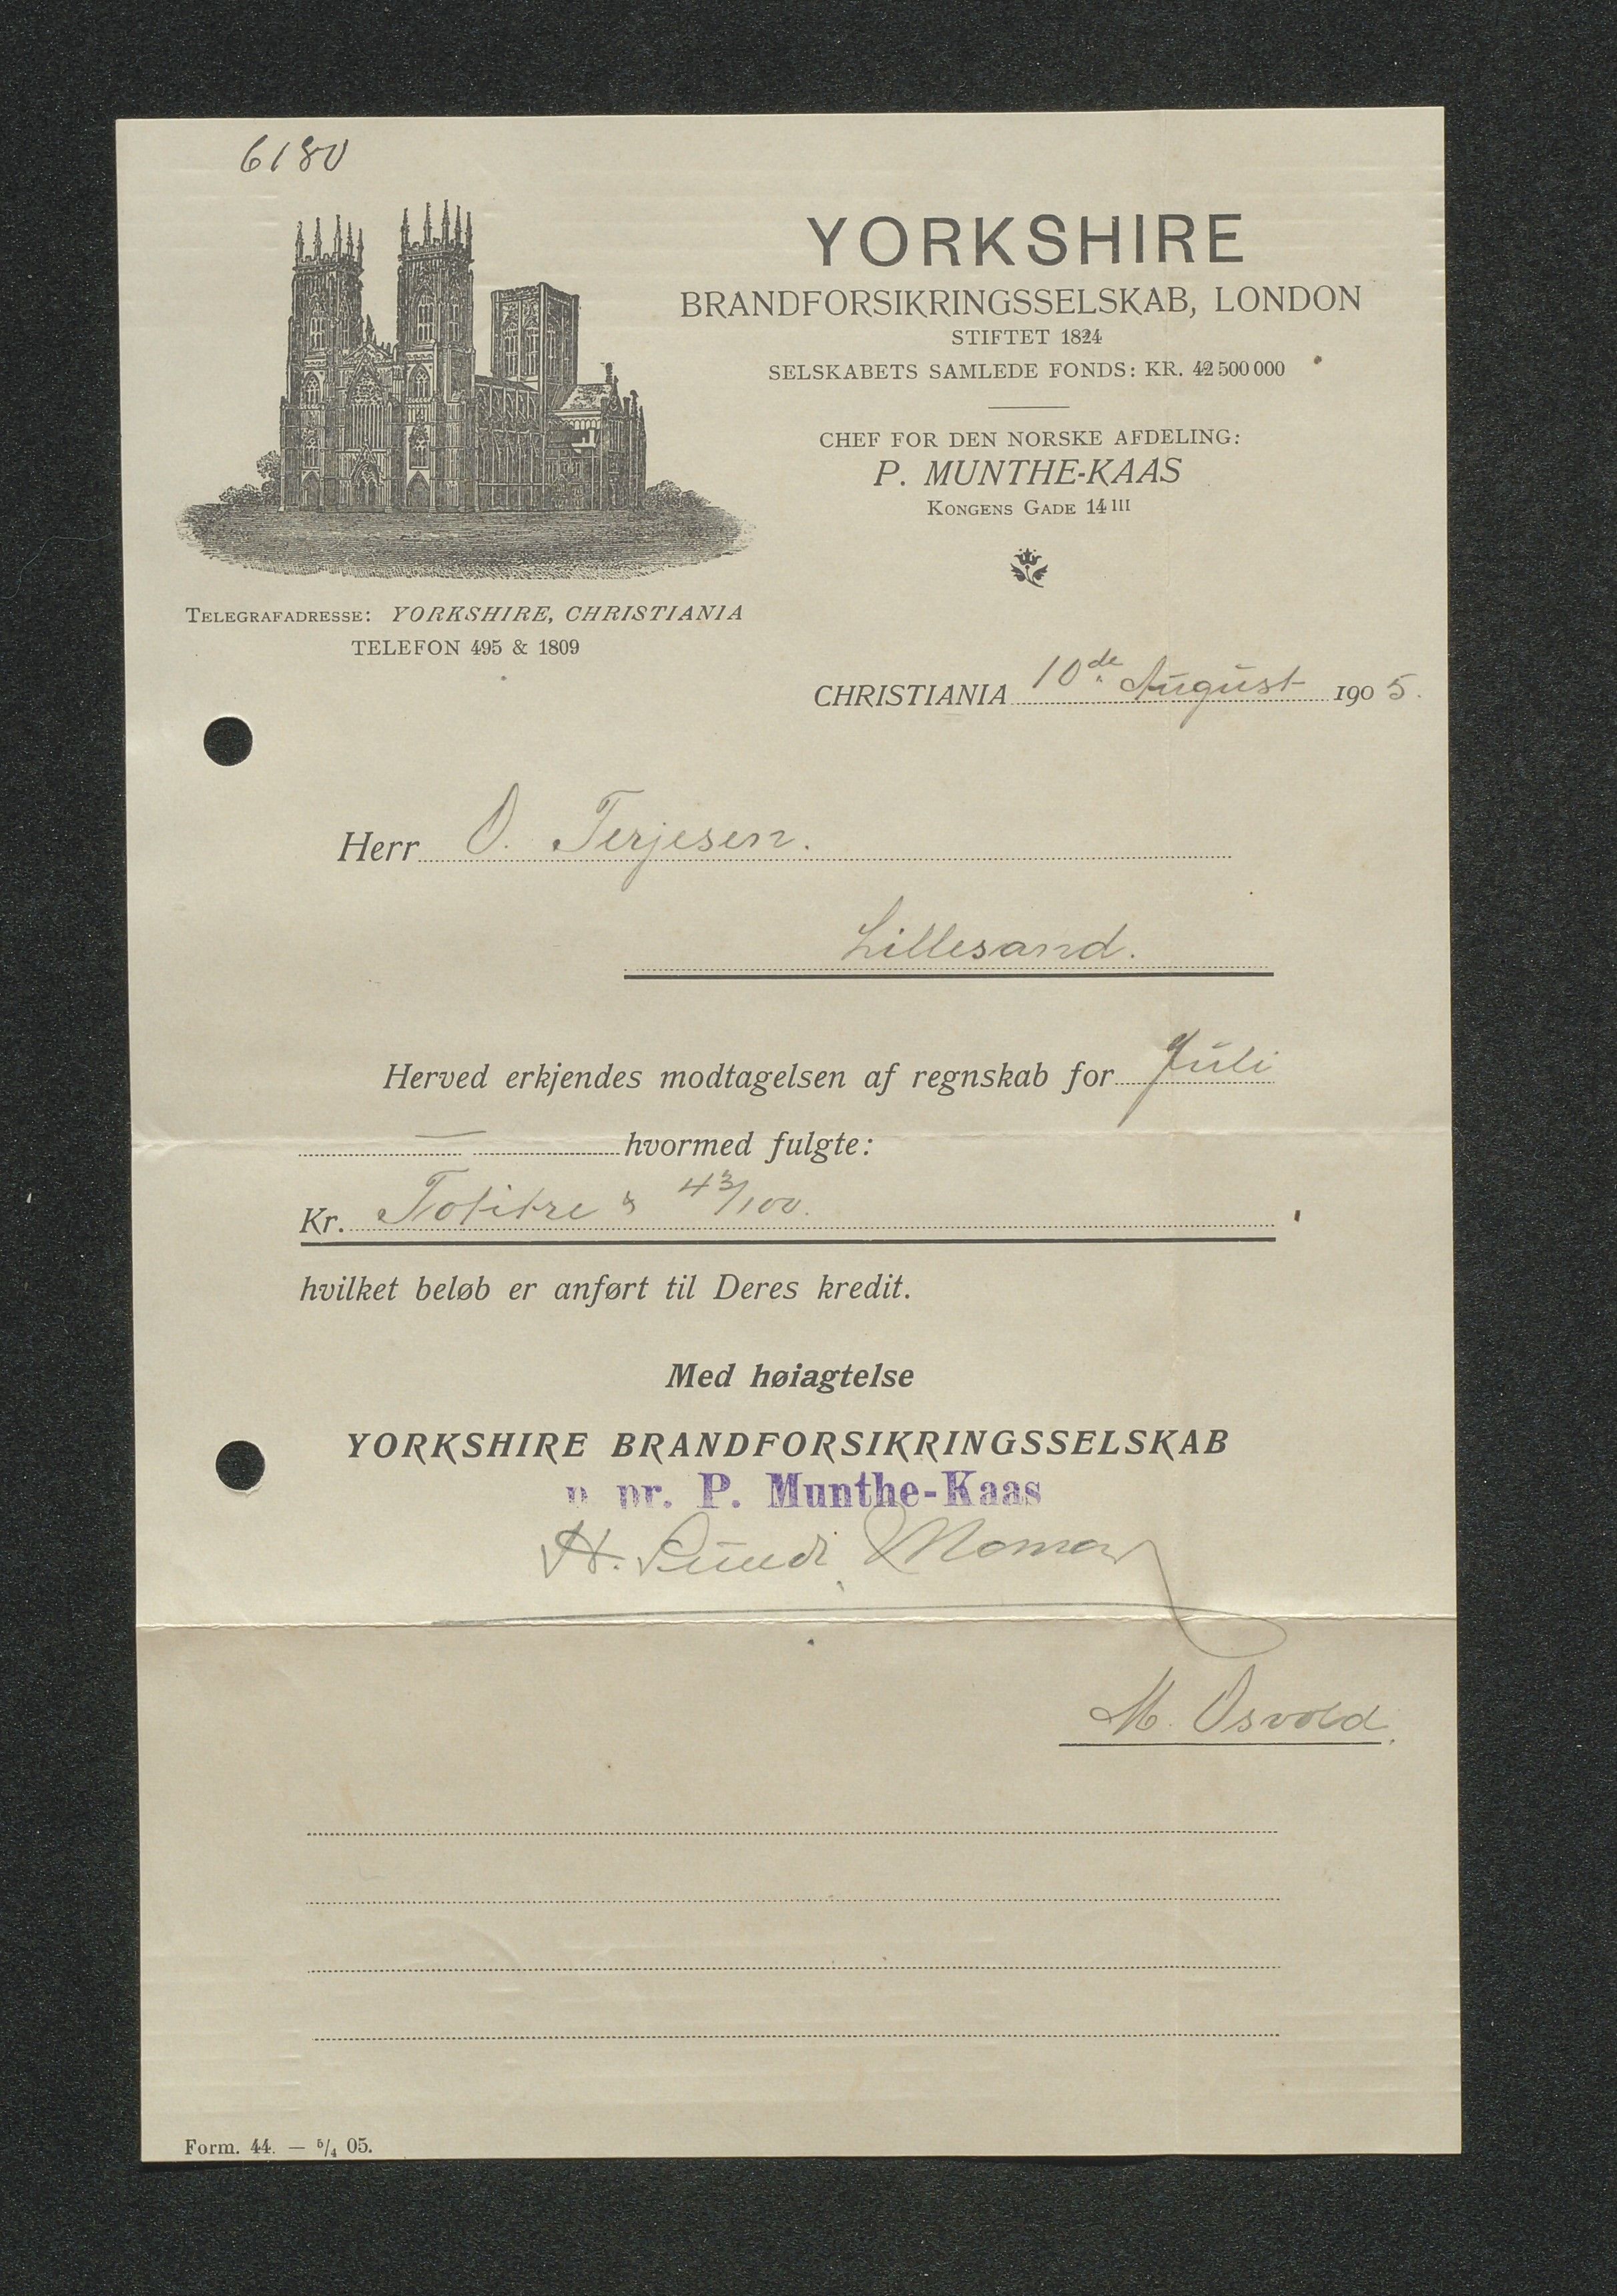 6180
YORKSHIRE
BRANDFORSIKRINGSSELSKAB, LONDON
STIFTET 1824
SELSKABETS SAMLEDE FONDS: KR. 42 500 000
CHEF FOR DEN NORSKE AFDELING:
P. MUNTHE-KAAS
KONGENS GADE 14 III
TELEGRAFADRESSE: YORKSHIRE, CHRISTIANIA
TELEFON 495 & 1809
CHRISTIANIA 10de August 1905.
Herr O. Terjesen.
Lillesand.
Herved erkjendes modtagelsen af regnskab for Juli
— hvormed fulgte:
Kr. 43/100.
hvilket beløb er anført til Deres kredit.
Med høiagtelse
YORKSHIRE BRANDFORSIKRINGSSELSKAB
p. pr. P. Munthe-Kaas
H.
M. Osvold.
Form. 44. — 5/4 05.